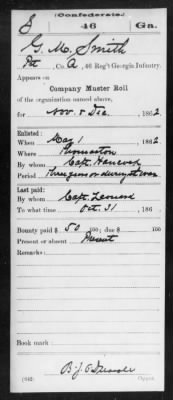 (Confederate.)
S 46 Ga.
G. M. Smith
Pvt, Co. A, 46 Reg't Georgia Infantry.
Appears on
Company Muster Roll
of the organization named above,
for Nov. & Dec., 1862
Enlisted:
When May 1, 1862
Where Thomaston
By whom Capt. Hancock
Period Three years or during the war
Last paid:
By whom Capt. Leonard
To what time Oct. 31, 186
Bounty paid $ 50 100; due $ 100
Present or absent Present
Remarks:
Book mark:
(642) Copyist.